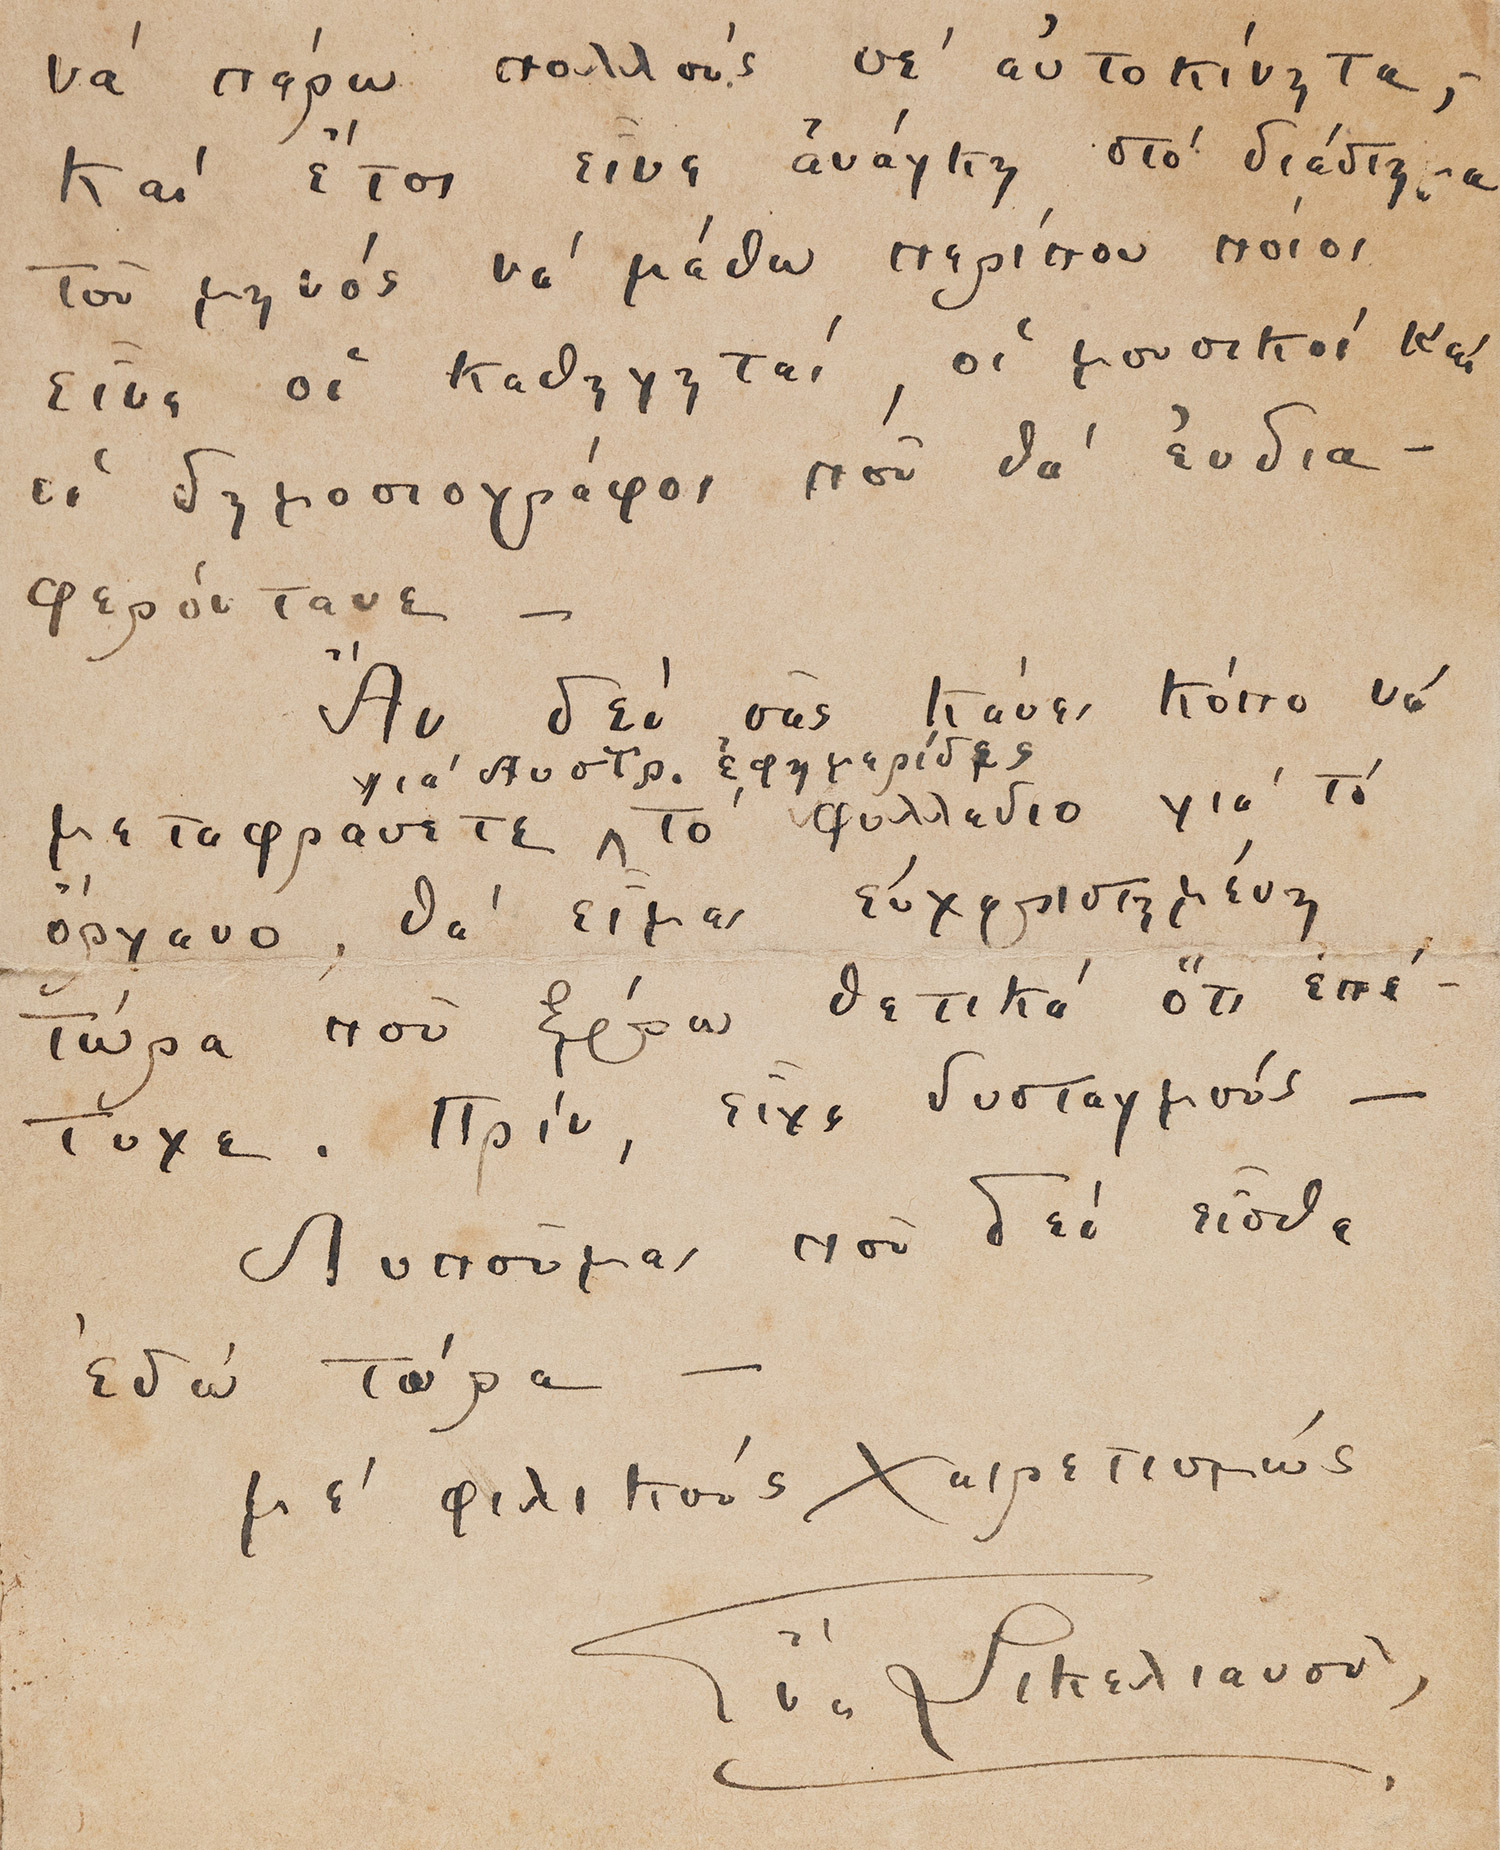 νά πάρω πολλούς σέ αὐτοκίνητα,
καί ἔτσι εἶνε ἀνάγκη στό διάστημα
τοῦ μηνός νά μάθω περίπου ποίοι
εἶνε οἱ καθηγηταί, οἱ μουσικοί καί
οἱ δημοσιογράφοι ποῦ θά ἐνδια-
φερόντανε —
Ἄν δέν σᾶς κάνει κόπο νά
γιά Αυστρ. ἐφημερίδες
μεταφράσετε ˄ τό φυλλάδιο γιά τό
ὄργανο, θά εἶμαι εὐχαριστημένη
Τώρα ποῦ ξέρω θετικά ὅτι ἐπέ-
τυχε. Πρίν, εἶχε δυσταγμούς —
Λυποῦμαι ποῦ δέν εἶσθε
ἐδώ τώρα —
μέ φιλικούς χαιρετισμώς
Εὔα Σικελιανοῦ,